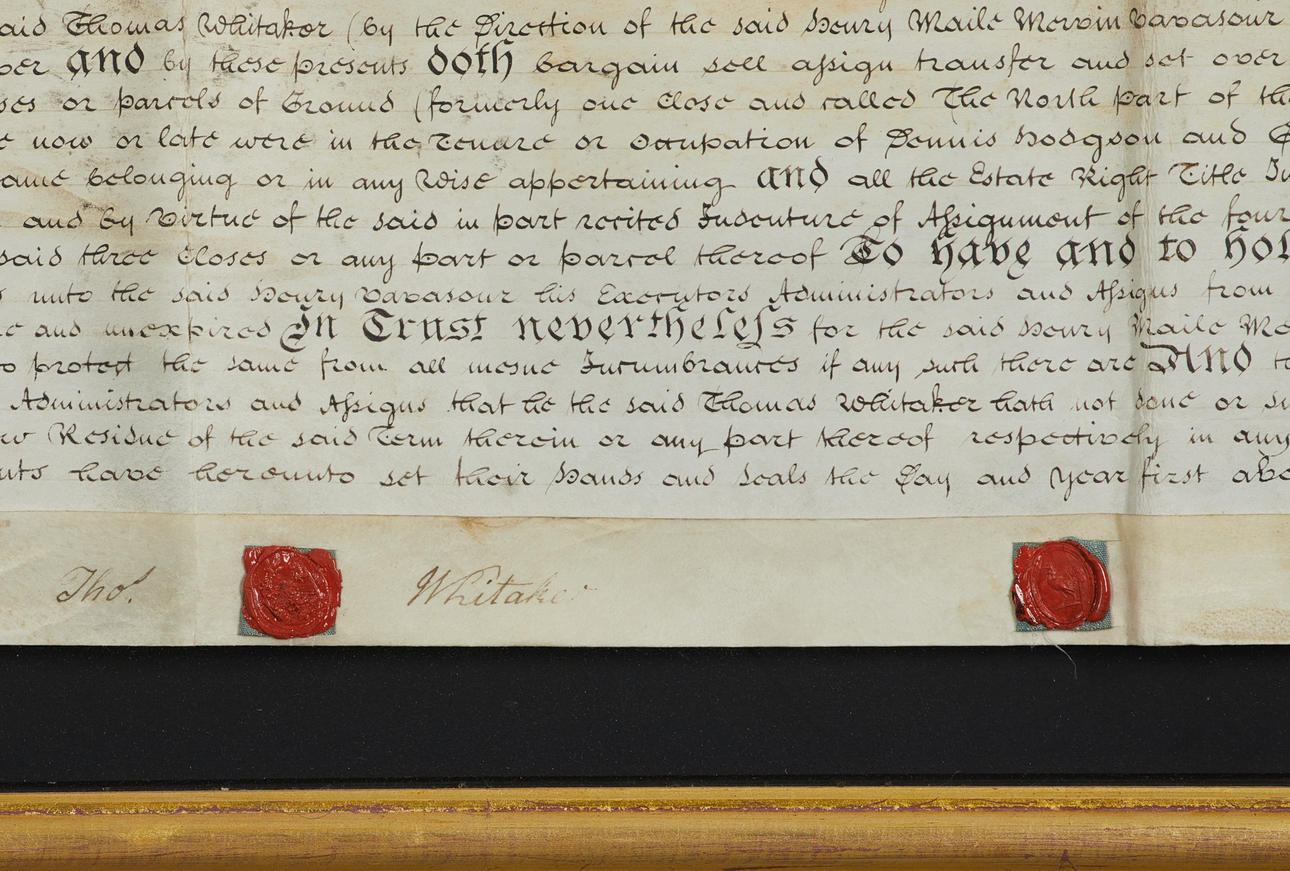 aid Thomas Whitaker (by the Direction of the said Henry Maile Mervin Vavasour
and by these presents doth bargain sell assign transfer and set over
ses or parcels of Ground (formerly one Close and called The North part of the
now or late were in the Tenure or Occupation of Dennis Hodgson and
ame belonging or in any Wise appertaining and all the Estate Right Title In
and by Virtue of the said in part recited Indenture of Assignment of the four
said three Closes or any part or parcel thereof To have and to hol
s unto the said Henry Vavasour his Executors Administrators and Assigns from
e and unexpired In Trust nevertheless for the said Henry Maile Me
o protect the same from all mesne Incumbrances if any such there are And to
Administrators and Assigns that he the said Thomas Whitaker hath not done or su
w Residue of the said Term therein or any part thereof respectively in any
nts have hereunto set their Hands and Seals the Day and Year first abo
Thos. Whitaker